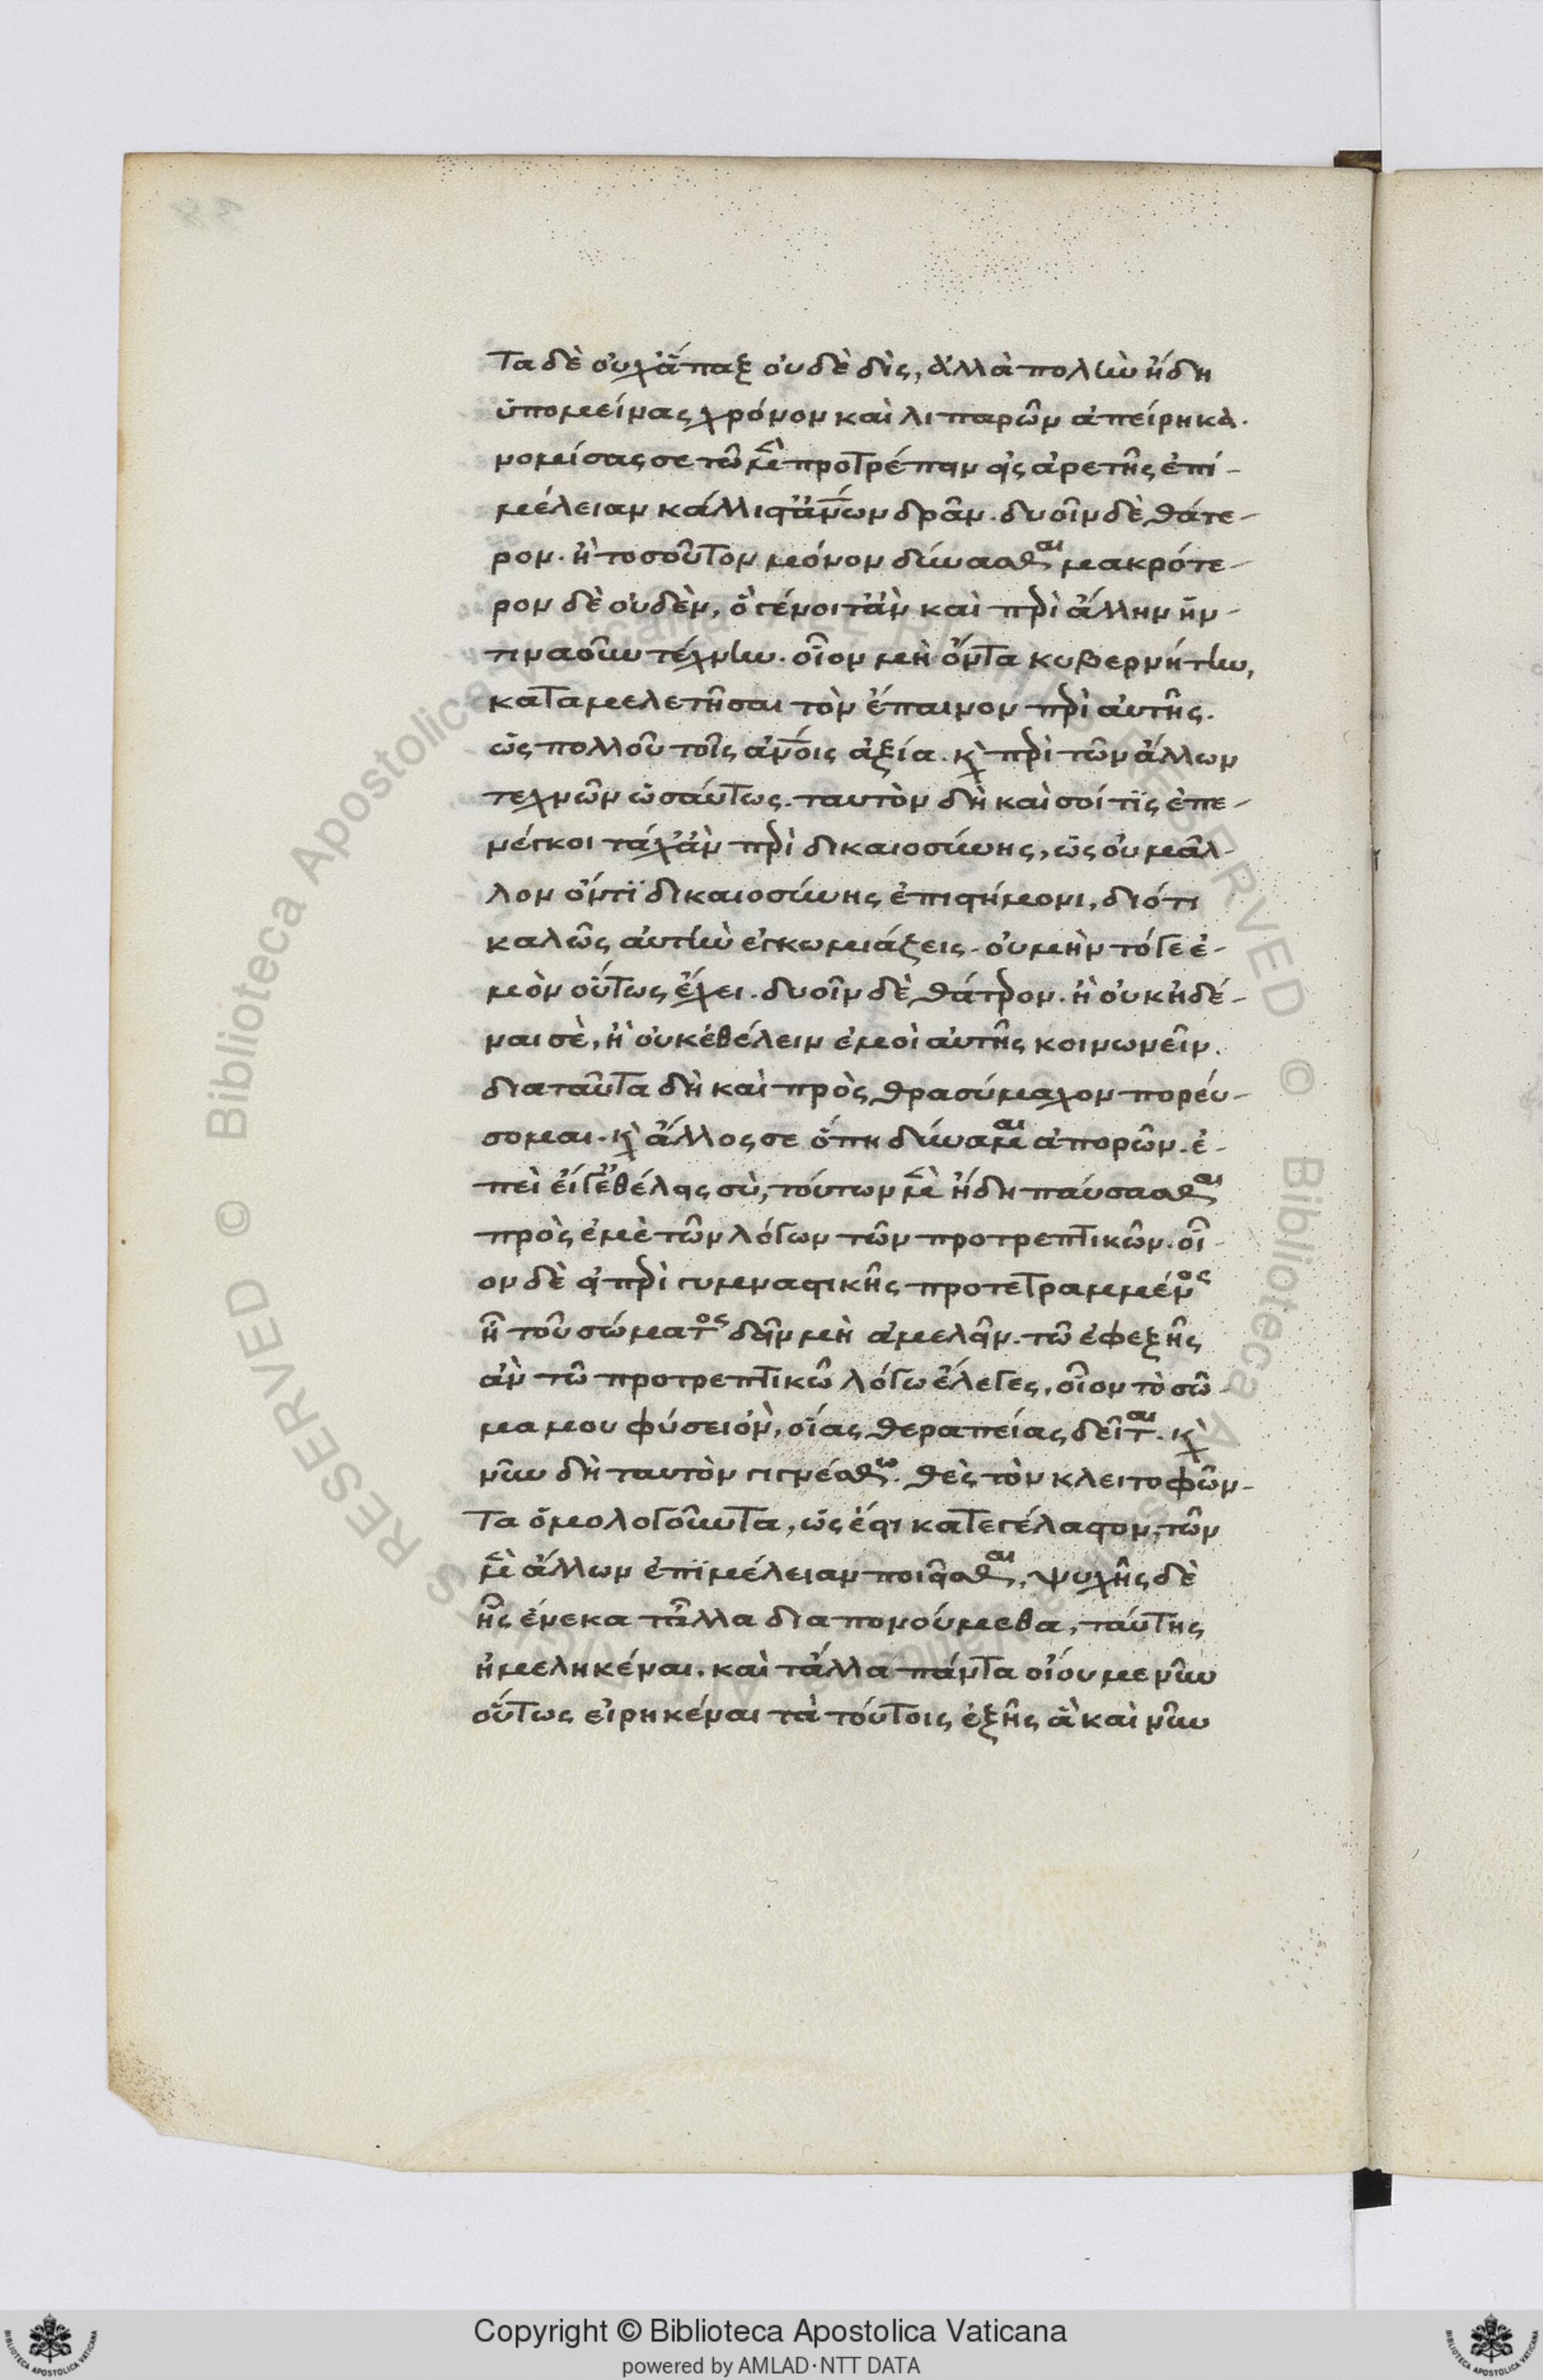 Τα δὲ οὐχ ἅπαξ οὐδὲ δὶς, ἀλλὰ πολὺν ἤδη
ὑπομείνας χρόνον καὶ λιπαρῶν ἀπείρηκα.
νομίσας σε τῶ μὲν προτρέπειν εἰς ἀρετῆς ἐπι-
μέλειαν κάλλιστ' ἀν̅ων δρᾶν. δυοῖν δὲ θάτε-
ρον. ἢ τοσοῦτον μόνον δύνασθαι μακρότε-
ρον δὲ οὐδὲν, ὃ γένοιτ' ἂν καὶ περὶ ἄλλην ἥν-
τιναοῦν τέχνην. οἷον μὴ ὄντα κυβερνήτην,
καταμελετῆσαι τὸν ἔπαινον περὶ αὐτῆς.
ὡς πολλοῦ τοῖς ἀν̅οις ἀξία. κ̀ περὶ τῶν ἄλλων
τεχνῶν ὡσαύτως. ταυτὸν δὴ καὶ σοί τις ἐπε-
νέγκοι τάχ' ἂν περὶ δικαιοσύνης, ὡς οὐ μᾶλ-
λον ὄντι δικαιοσύνης ἐπιστήμονι, διότι
καλῶς αὐτὴν ἐγκωμιάζεις. οὐ μὴν τό γε ἐ-
μὸν οὕτως ἔχει. δυοῖν δὲ θάτερον. ἢ οὐκ ἠδέ-
ναι σὲ, ἢ οὐκ ἐθέλειν ἐμοὶ αὐτῆς κοινωνεῖν.
διαταῦτα δὴ καὶ πρὸς θρασύμαχον πορεύ-
σομαι. κ̀ ἄλλος σε ὅπη δύναμαι ἀπορῶν. ἐ-
πεὶ εἴ γ' ἐθέλεις σὺ, τούτων μὲν ἤδη παύσασθαι
πρὸς ἐμὲ τῶν λόγων τῶν προτρεπτικῶν. οἷ-
ον δὲ εἰ περὶ γυμναστικῆς προτετραμμένος
ἦ τοῦ σώματος δεῖν μὴ ἀμελεῖν. τῶ ἐφεξῆς
ἂν τῶ προτρεπτικῶ λόγω ἔλεγες, οἷον τὸ σῶ-
μα μου φύσει ὂν, οἵας θεραπείας δεῖται. κ̀
νῦν δὴ ταυτὸν γιγνέσθω. θὲς τὸν κλειτοφῶν-
τα ὁμολογοῦντα, ὡς ἔστι καταγέλαστον, τῶν
μὲν ἄλλων ἐπιμέλειαν ποιεῖσθαι, ψυχῆς δὲ
ἧς ἕνεκα τἆλλα διαπονούμεθα, ταύτης
ἠμεληκέναι. καὶ τἄλλα πάντα οἴου με νῦν
οὕτως εἰρηκέναι τὰ τούτοις ἑξῆς ἃ καὶ νῦν
Copyright © Biblioteca Apostolica Vaticana
powered by AMLAD·NTT DATA